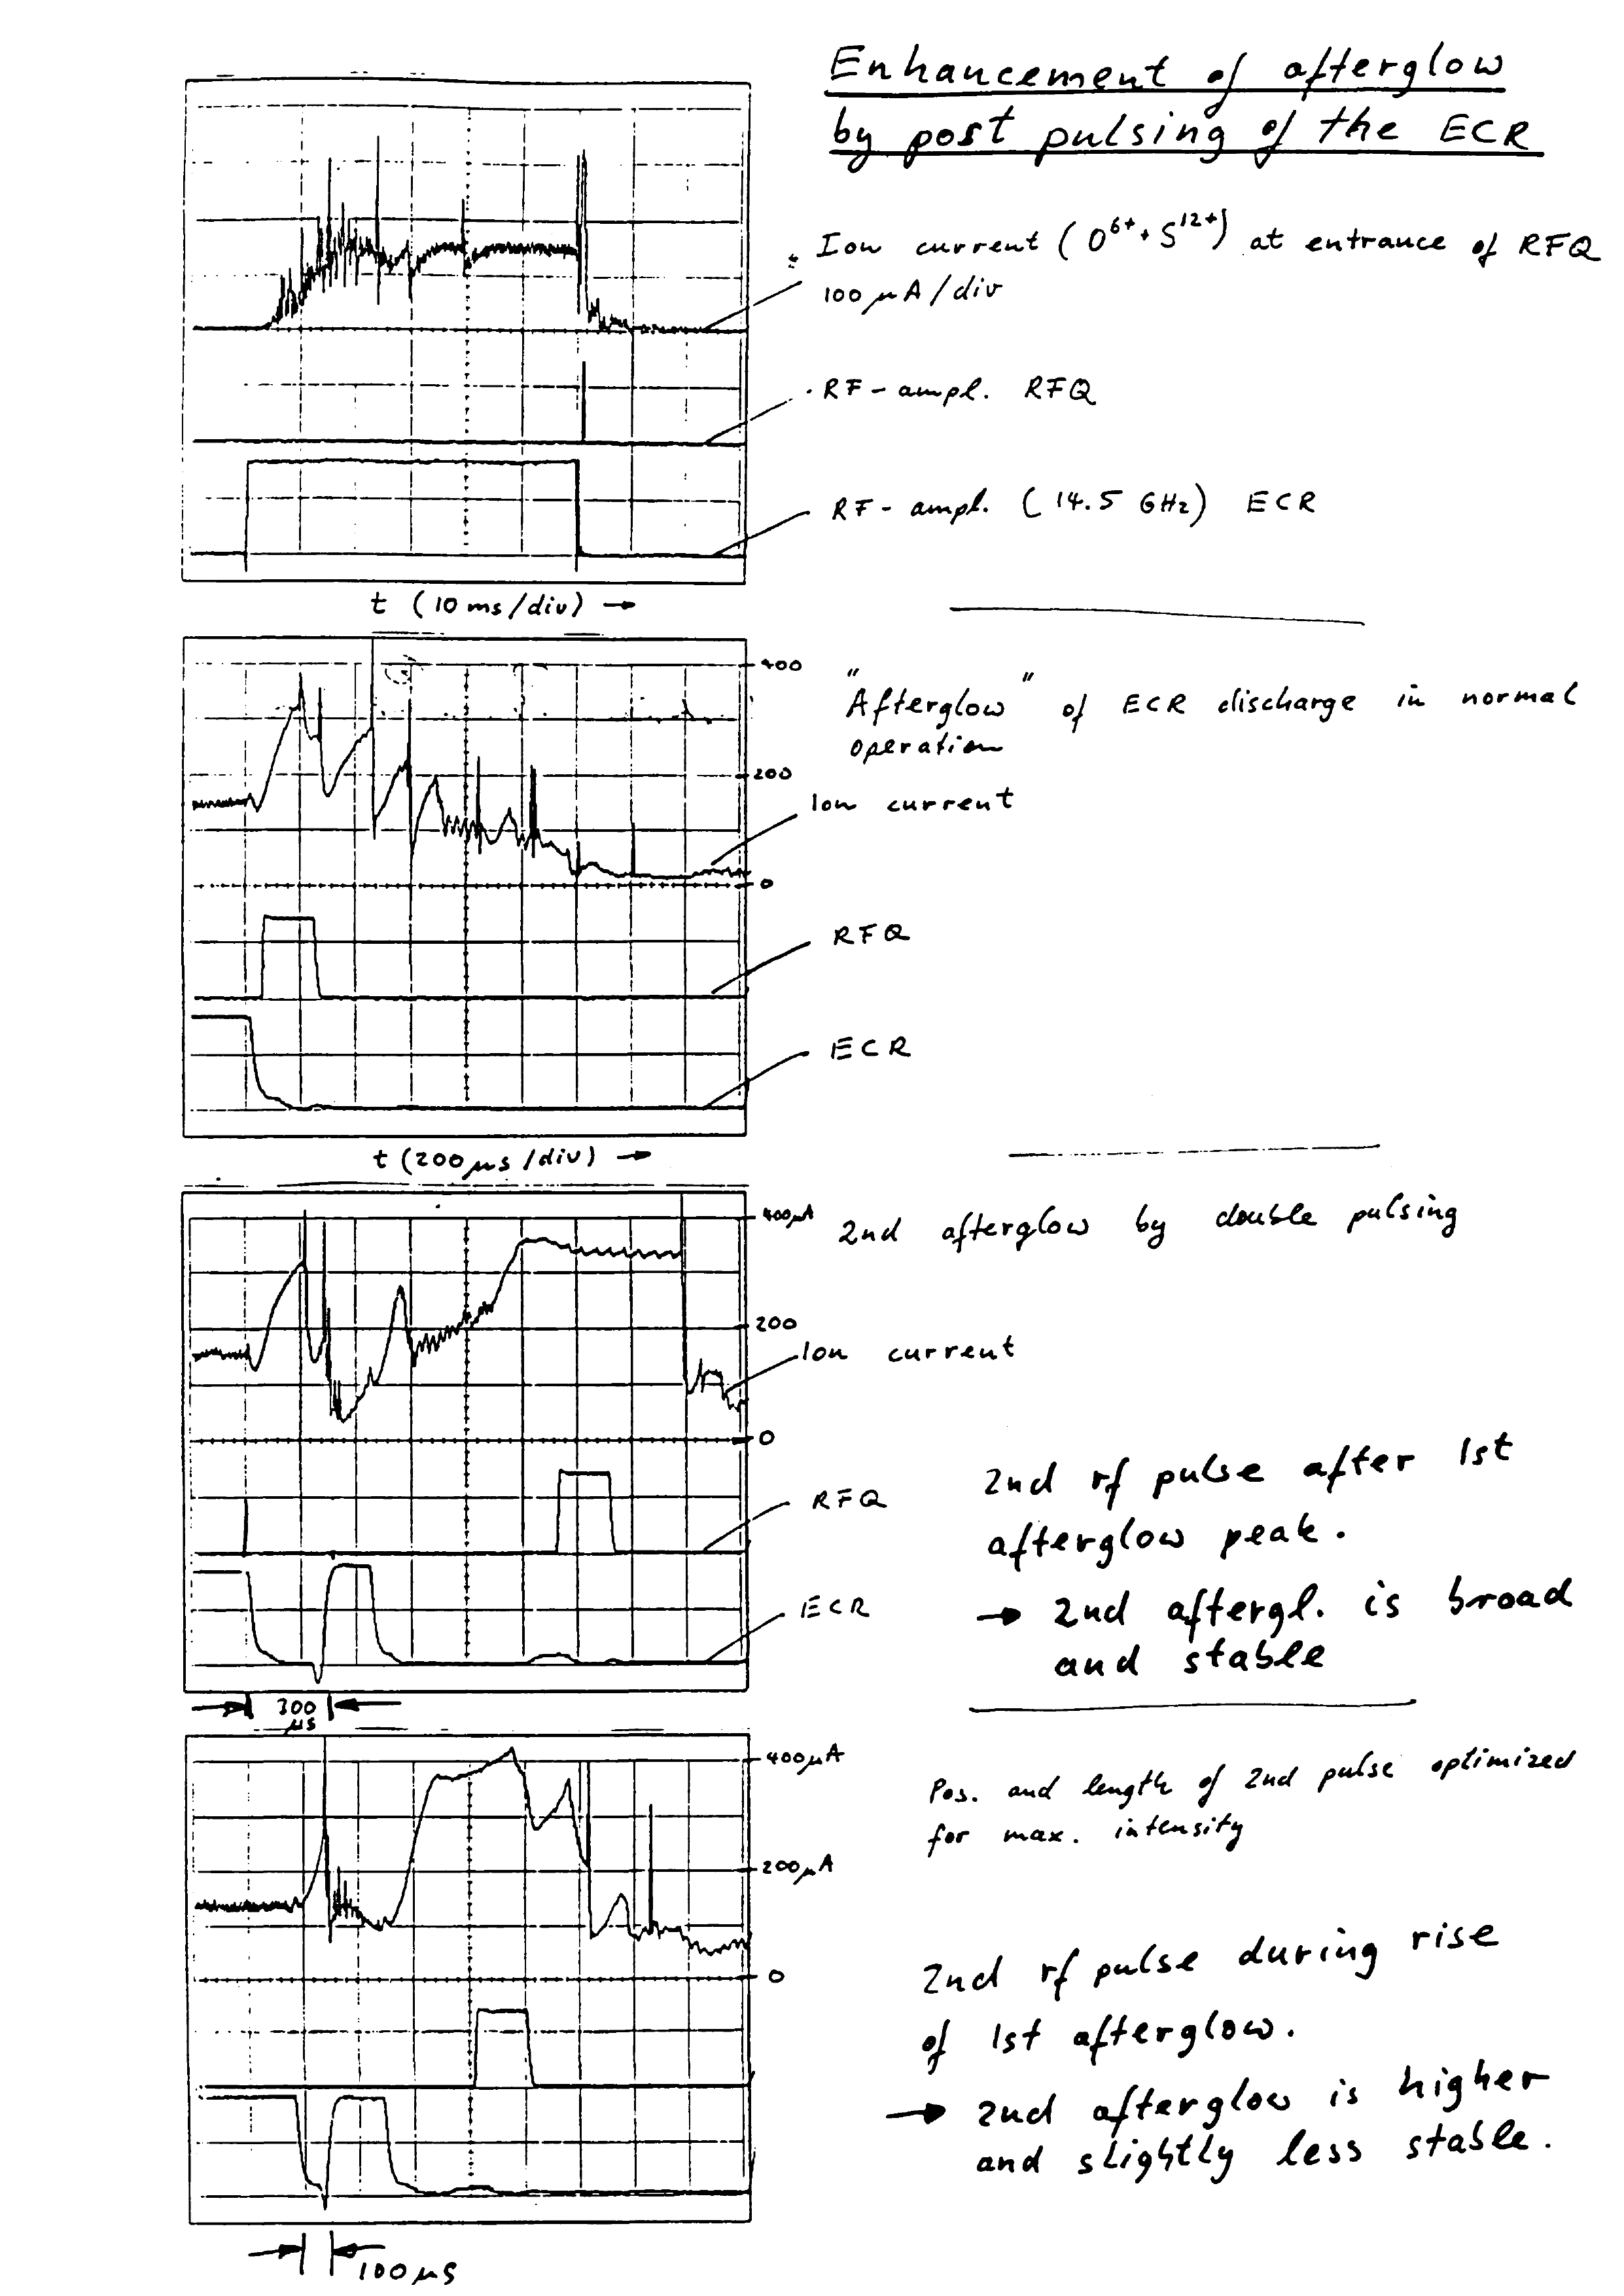 Enhancement of afterglow
by post pulsing of the ECR
Ion current (O⁶⁺ + S¹²⁺) at entrance of RFQ
100 µA/div
RF-ampl. RFQ
RF-ampl. (14.5 GHz) ECR
t (10 ms/div) →
400
"Afterglow" of ECR discharge in normal
operation
200
Ion current
0
RFQ
ECR
t (200 µs/div) →
400µA
2nd afterglow by double pulsing
200
Ion current
0
2nd rf pulse after 1st
afterglow peak.
RFQ
→ 2nd aftergl. is broad
and stable
ECR
300
µs
400µA
Pos. and length of 2nd pulse optimized
for max. intensity
200µA
0
2nd rf pulse during rise
of 1st afterglow.
→ 2nd afterglow is higher
and slightly less stable.
100µs